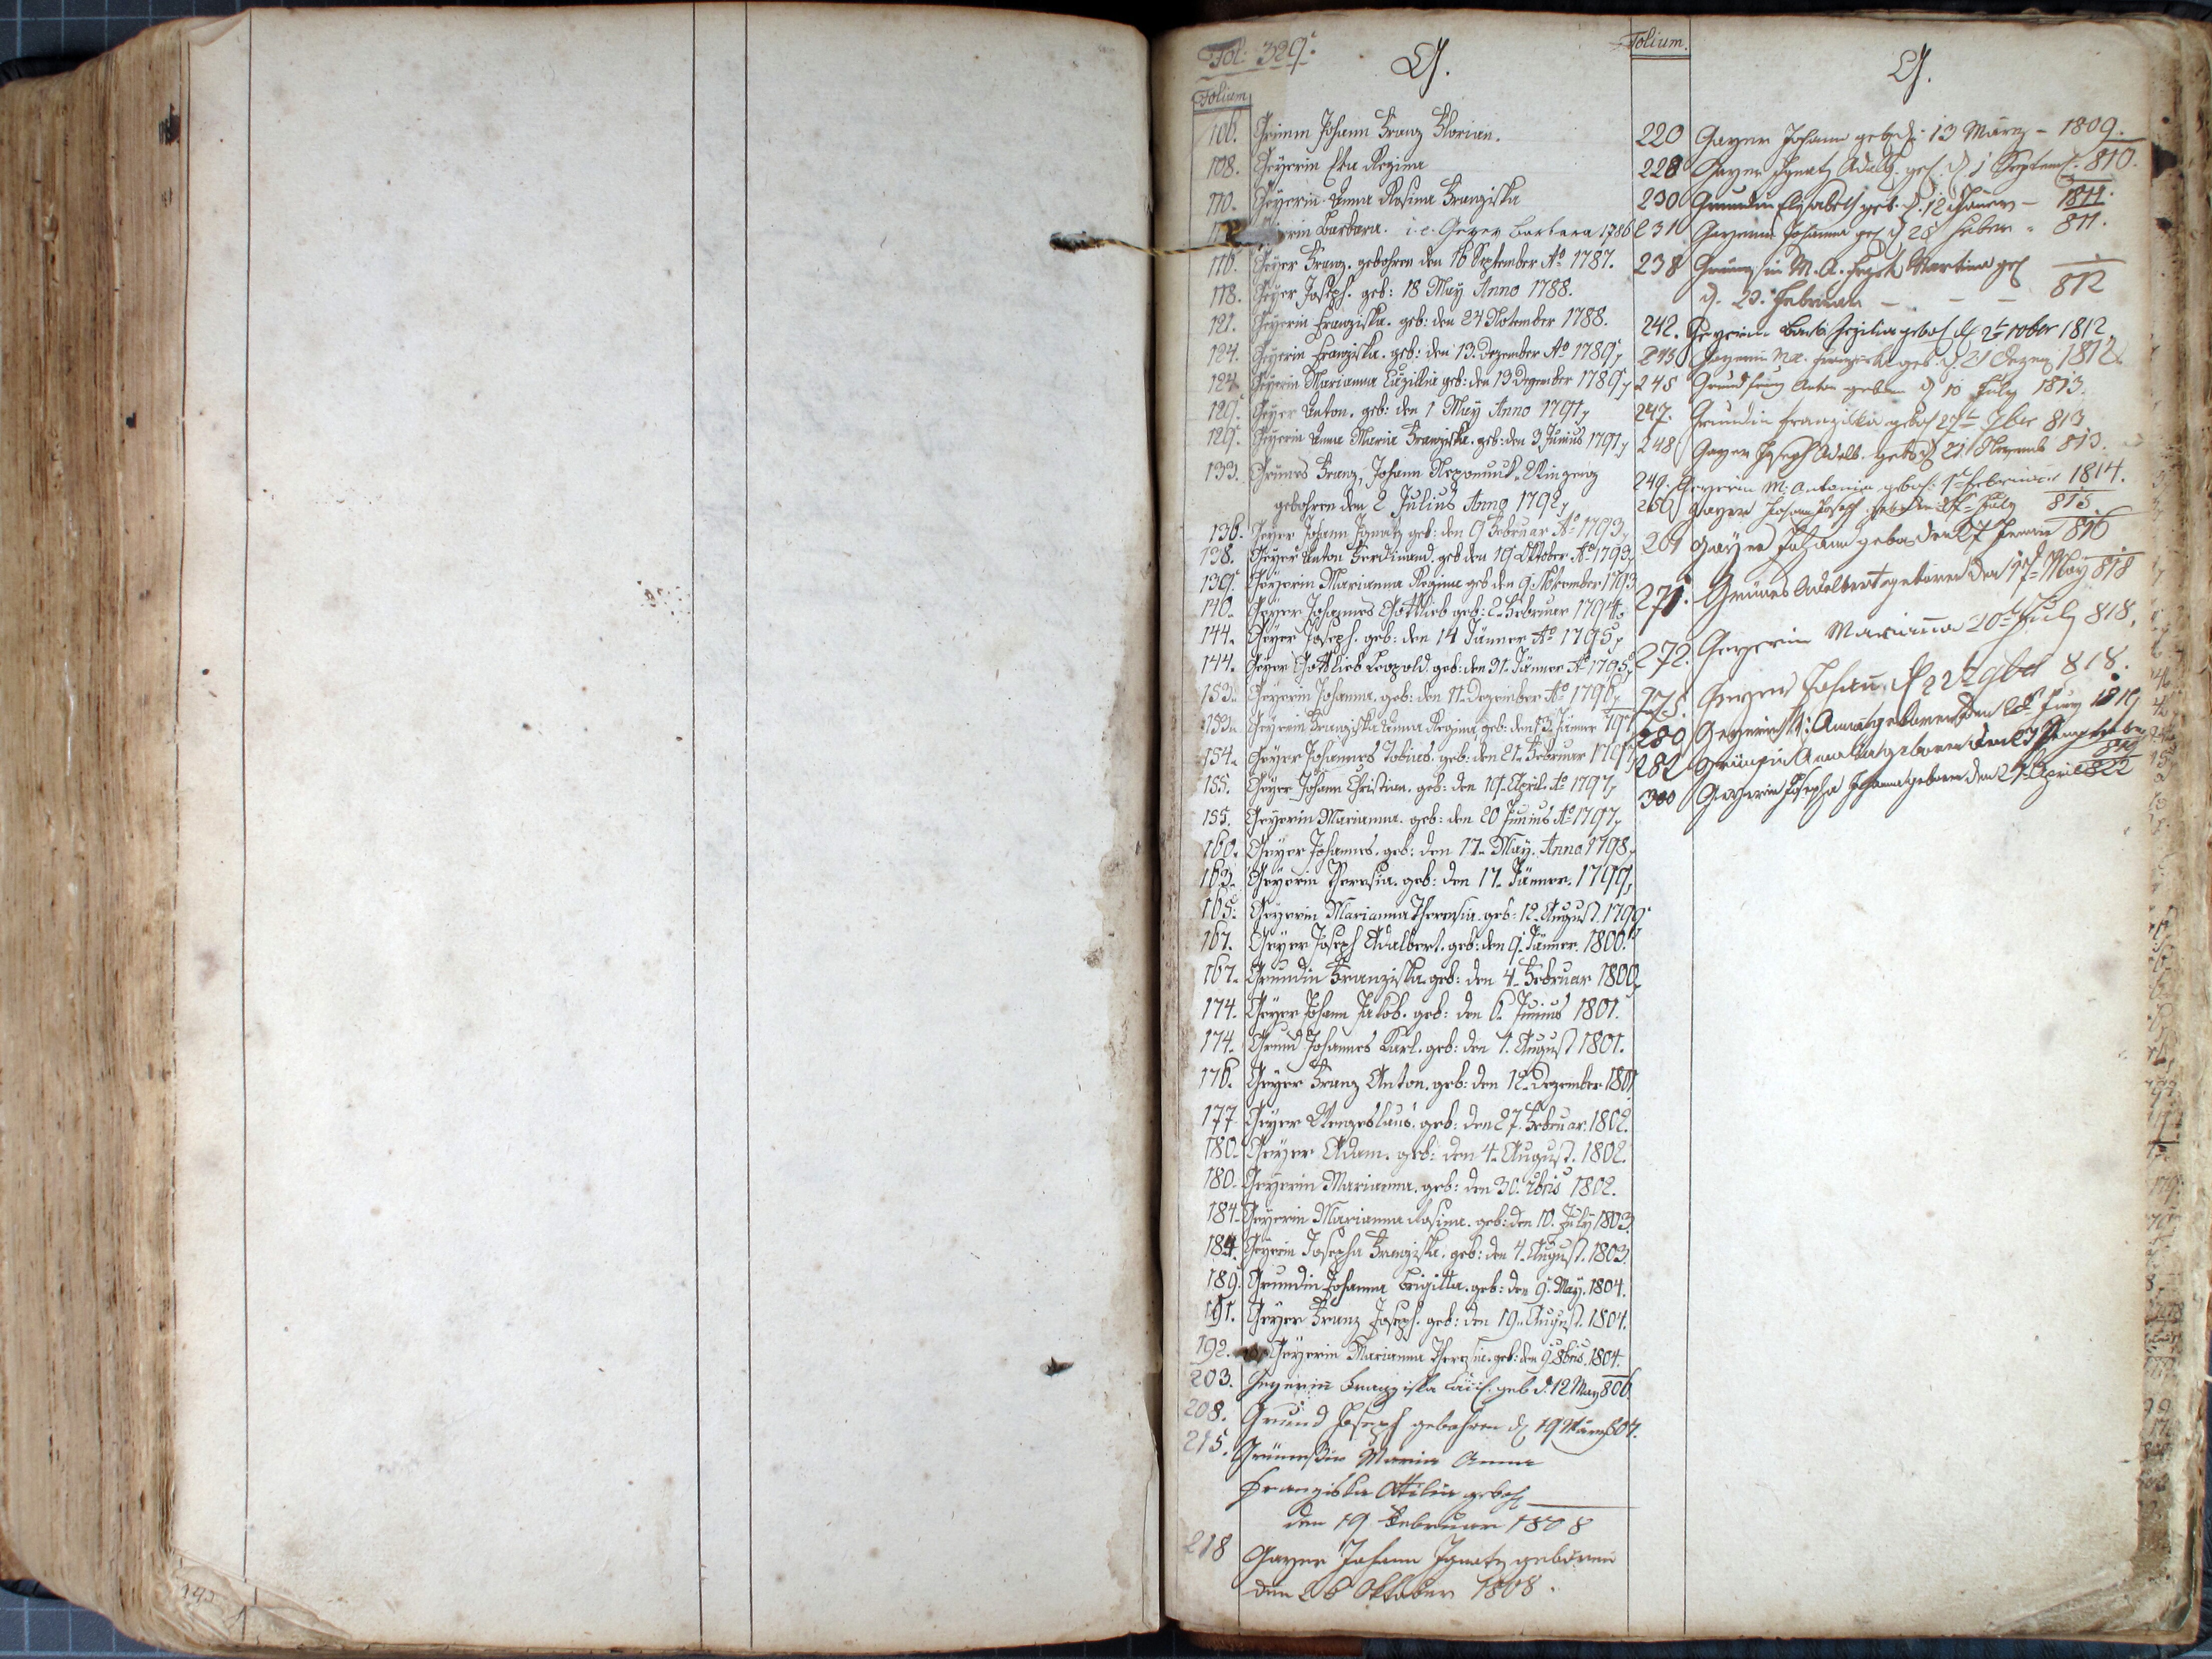 Fol: 329.
G.
Folium
106. Grimm Johann Franz Florian.
108. Geÿerin Eva Regina
110. Geÿerin Anna Rosina Franziska
Barbara. i. e. Geyer Barbara 1786
116. Geÿer Franz. gebohren den 16 September Aō 1787.
118. Geÿer Joseph. geb: 18 May Anno 1788.
121. Geÿerin Franziska. geb: den 24 November 1788.
124. Geÿerin Franziska. geb: den 13. Dezember Aō 1789,
124. Geÿerin Marianna Luzillia geb: den 13 Dezember 1789,
129. Geÿer Anton. geb: den 1 May Anno 1791,
129. Geÿerin Anna Maria Franziska. geb: den 3 Junius 1791,
133. Grünes Franz, Johann Nepomuck
gebohren den 2 Julius Anno 1792,
136. Geÿer Johann Ignatz geb: den 9 Februar Aō 1793,
138. Geÿer Anton Ferdinand. geb den 19 Oktober Aō 1793.
139. Geÿerin Marianna Regina geb den 9. November 1793
140. Geyer Johannes Gottlieb geb: 2. Februar 1794.
144. Geÿer Joseph. geb: den 14 Jänner Aō 1795,
144. Geyer Gottlieb Leopold. geb: den 31. Jänner Aō 1795,
153. Geÿerin Johanna. geb: den 11. Dezember Aō 1796,
153. Geÿerin Franziska Anna Regina geb: den 3. Jänner 797
154. Geÿer Johannes Tobias. geb: den 21. Februar 1797,
155. Geÿer Johann Christian. geb: den 19. April. Aō 1797,
155. Geyerin Marianna. geb: den 20 Junius Aō 1797,
160. Geÿer Johannes. geb: den 17. May. Anno 1798,
163. Geÿerin Theresia. geb: den 17. Jänner. 1799,
165. Geÿerin Marianna Theresia. geb: 12. August. 1799
167. Geÿer Joseph Adalbert. geb: den 9. Jänner. 1800.
167. Grundin Franziska. geb: den 4. Februar 1800
174. Geÿer Johann Jakob. geb: den 6. Junius 1801.
174. Grund Johannes Karl. geb: den 7. August 1801.
176. Geÿer Franz Anton. geb: den 12. Dezember 1801
177 Geÿer Wenzeslaus. geb: den 27. Februar. 1802.
180. Geÿer Adam. geb: den 4. August. 1802.
180. Geÿerin Marianna. geb: den 30. 1802.
184. Geÿerin Marianna Rosina. geb: den 10. July 1803.
184. Geÿerin Josepha Franziska. geb: den 4. August. 1803.
189. Grundin Johanna Brigitta. geb: den 9. May. 1804.
191. Geÿer Franz Joseph. geb: den 19. August. 1804.
192. Geÿerin Marianna Theresia. geb: den 9. 8bris. 1804.
203. Geyerin Franziska geb d. 12 May 806.
208. Grund Joseph gebohren d 19 März 807.
215. Maria Anna
Franziska Ottilia geboh
den 19 Februar 1808
218 Gayer Johann Ignatz geboren
den 26 Oktober 1808.
Folium.
G.
220 Gayer Johann geb d. 13 März - 1809.
228 Gayer Ignatz Adalb. geb. d. 1 Septemb. 810.
230 Grundin Elisabeth geb. d. 12 Jäner - 1811.
231 Gayerin Johanna geb d 28 - 811.
238 M. A. Martina geb
d. 23. Februar - - - 812
242. Geyerin Barb. geboh d 2t 10ber 1812
243 Geyerin geb. d. 21 Dezem 1812.
245 Grund Anton geboh d 10 July 1813.
247. Grundin Franziska geboh 27t 7ber 813
248 Gayer Joseph Adalb. geb d 21. Novemb 813.
249. Geyerin M: Antonia geboh: 1t Februar 1814.
260 Gayer Johann Joseph July 815.
261 Gayer Johann geboh den 27 816
271. Grünes Adalbert geboren den 17t May 818
272. Geyerin Marianna 20t July 818,
275. Geyer Johann 9ber 818.
280 Geyerin M: Anna geboren den 1819
282 Anna geboren den September
819
300 Geyerin Josepha Johanna geboren den 27t April 822